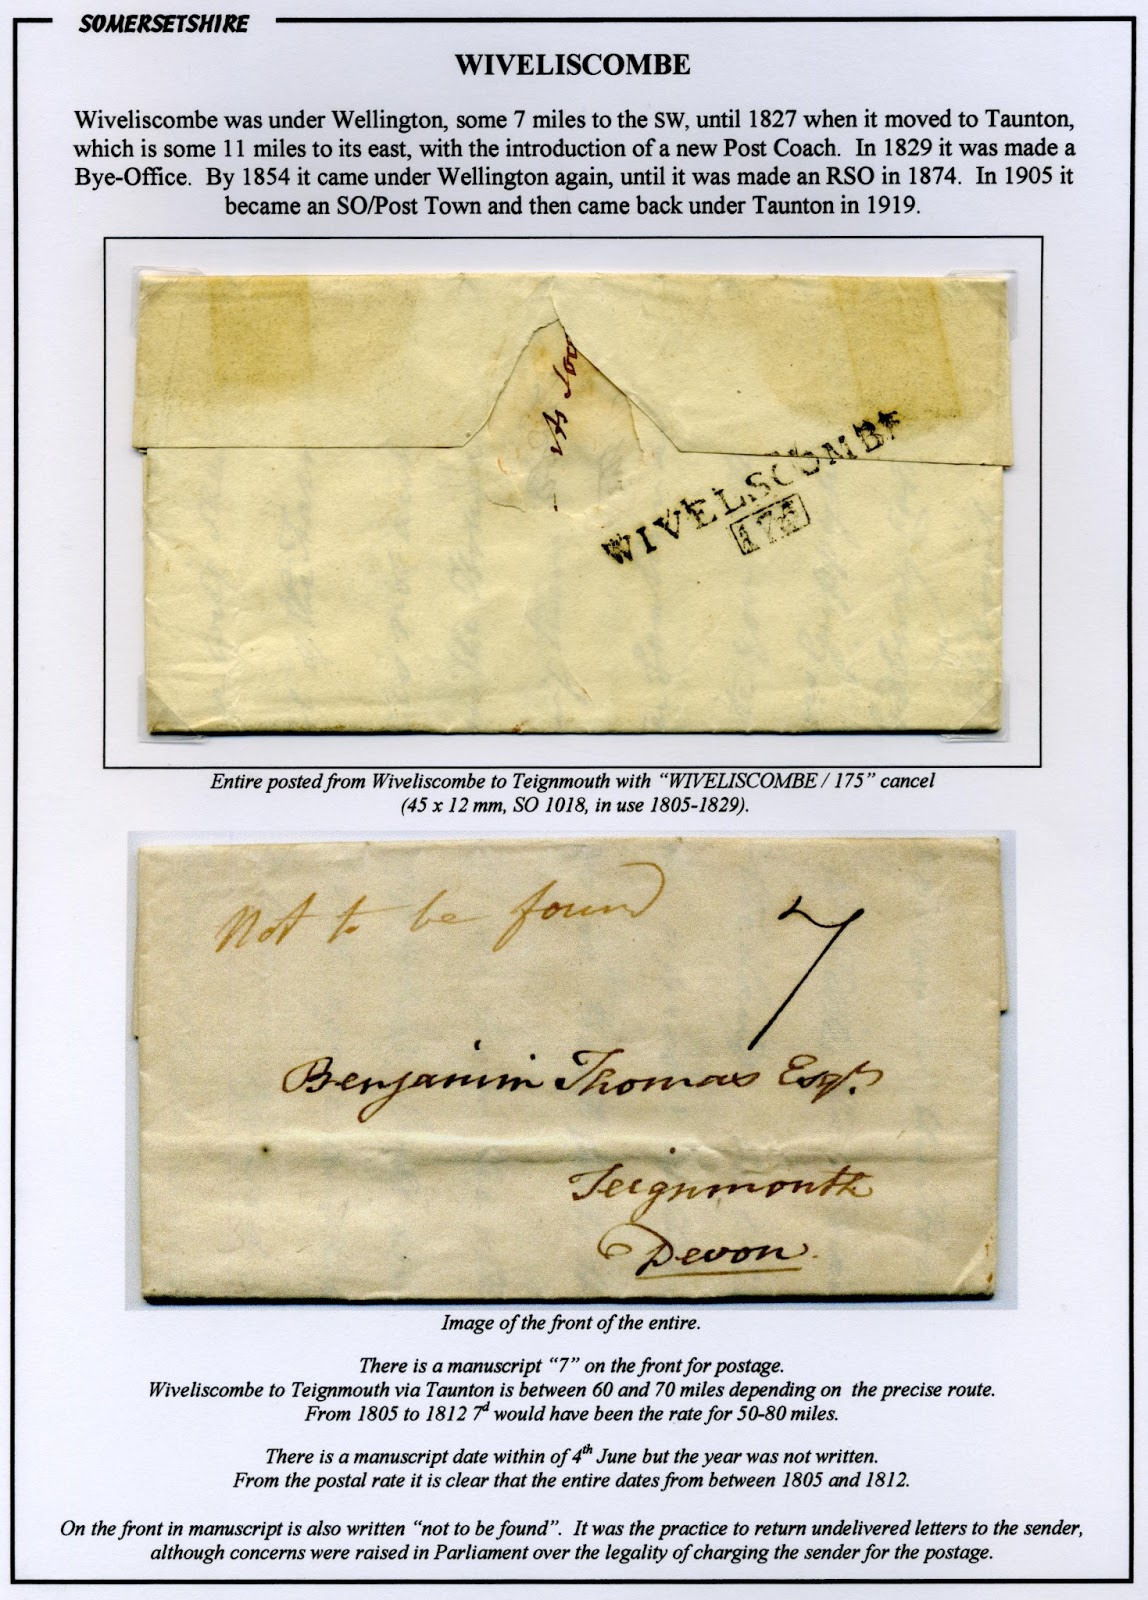 SOMERSETSHIRE
WIVELISCOMBE
Wiveliscombe was under Wellington, some 7 miles to the SW, until 1827 when it moved to Taunton,
which is some 11 miles to its east, with the introduction of a new Post Coach. In 1829 it was made a
Bye-Office. By 1854 it came under Wellington again, until it was made an RSO in 1874. In 1905 it
became an SO/Post Town and then came back under Taunton in 1919.
WIVELSCOMBE
175
Entire posted from Wiveliscombe to Teignmouth with “WIVELISCOMBE / 175” cancel
(45 x 12 mm, SO 1018, in use 1805-1829).
Not to be found
7
Benjamin Thomas Esqr.
Teignmouth
Devon
Image of the front of the entire.
There is a manuscript “7” on the front for postage.
Wiveliscombe to Teignmouth via Taunton is between 60 and 70 miles depending on the precise route.
From 1805 to 1812 7d would have been the rate for 50-80 miles.
There is a manuscript date within of 4th June but the year was not written.
From the postal rate it is clear that the entire dates from between 1805 and 1812.
On the front in manuscript is also written “not to be found”. It was the practice to return undelivered letters to the sender,
although concerns were raised in Parliament over the legality of charging the sender for the postage.